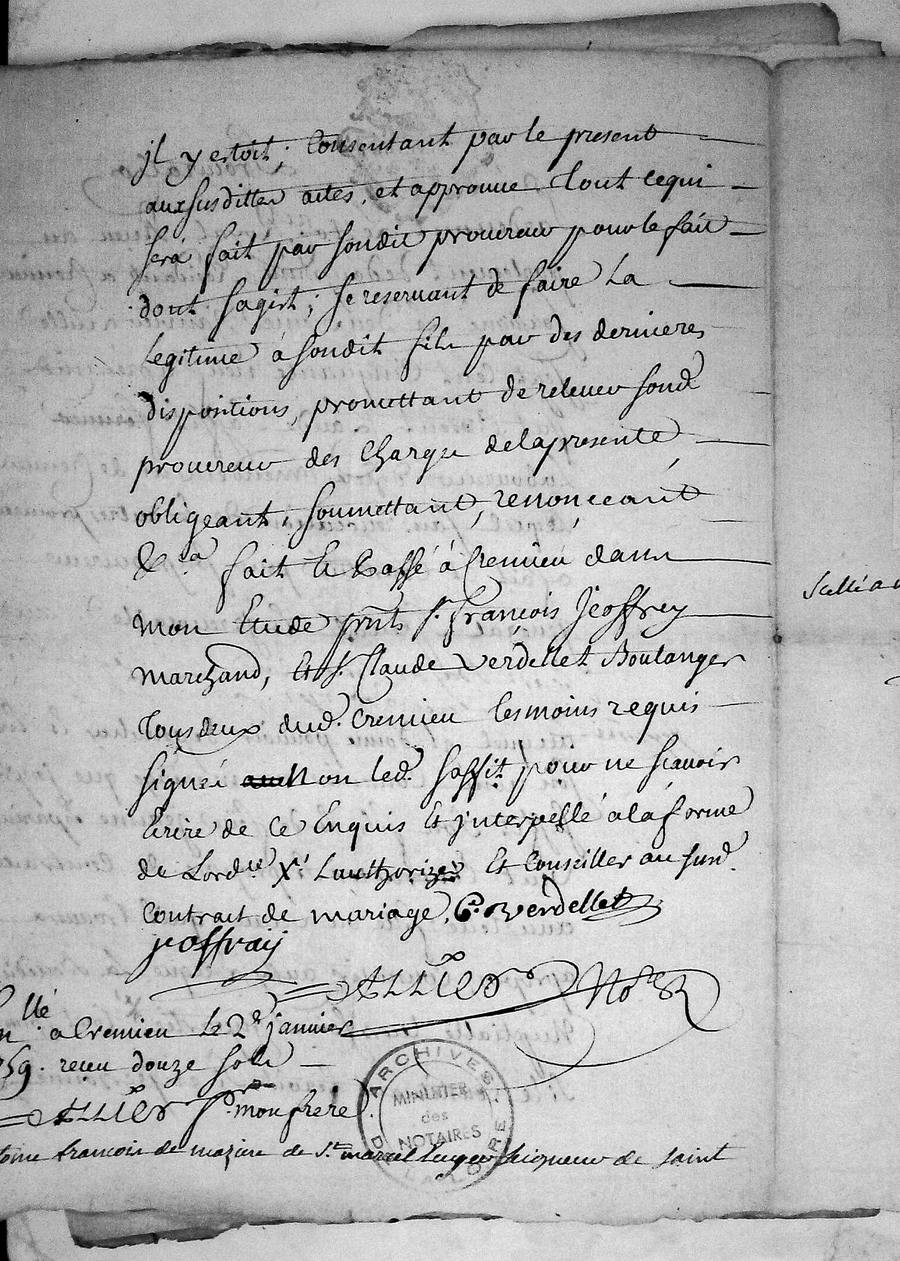 jl y estoit; Consentant par le present
aux susdittes actes, et approuve tout cequi
sera fait par sondit procureur pour le fait
dont sagist; se reservant de faire La
Legitime à sondit fils par des dernieres
dispositions, promettant de relever sond
procureur des Charges delapresente
obligeant, soumettant, renonceant
&a fait Et Passé à Cremieu dans
mon Etude pnts Sr. françois Jeoffrey
marchand, Et Sr. Claude Verdellet Boulanger
Tous deux dud. Cremieu tesmoins requis
signéz non led. pour ne scavoir
Ecrire de Ce Enquis Et jnterpellé alaforme
de Lordce Lauthorizer Et Conseiller au susd.
Contrait de mariage, C. verdellet
jeoffray
ALLIER Nore
llé a Cremieu le 2e janvier
59. receu douze sols
ALLIER pr. mon frere
francois de mazine de St. marcel seigneur de saint
Scellé a
ARCHIVES
MINUTIER
des
NOTAIRES